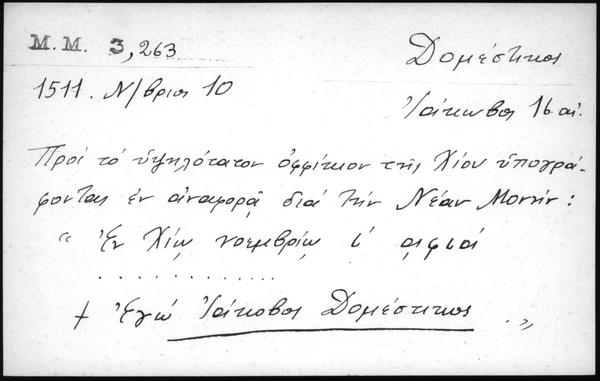 Μ.Μ. 3,263
Δομέστικος
1511. Ν/βριος 10
Ἰάκωβος 16 αἰ.
Πρὸς τὸ ὑψηλότατον ὀφφίκιον τῆς Χίου ὑπογρά-
φοντας ἐν ἀναφορᾷ διὰ τὴν Νέαν Μονήν:
“ Ἐν Χίῳ νοεμβρίῳ ι´ αφια´
. . . . . . . . . . . .
+ Ἐγὼ Ἰάκοβος Δομέστικος . „